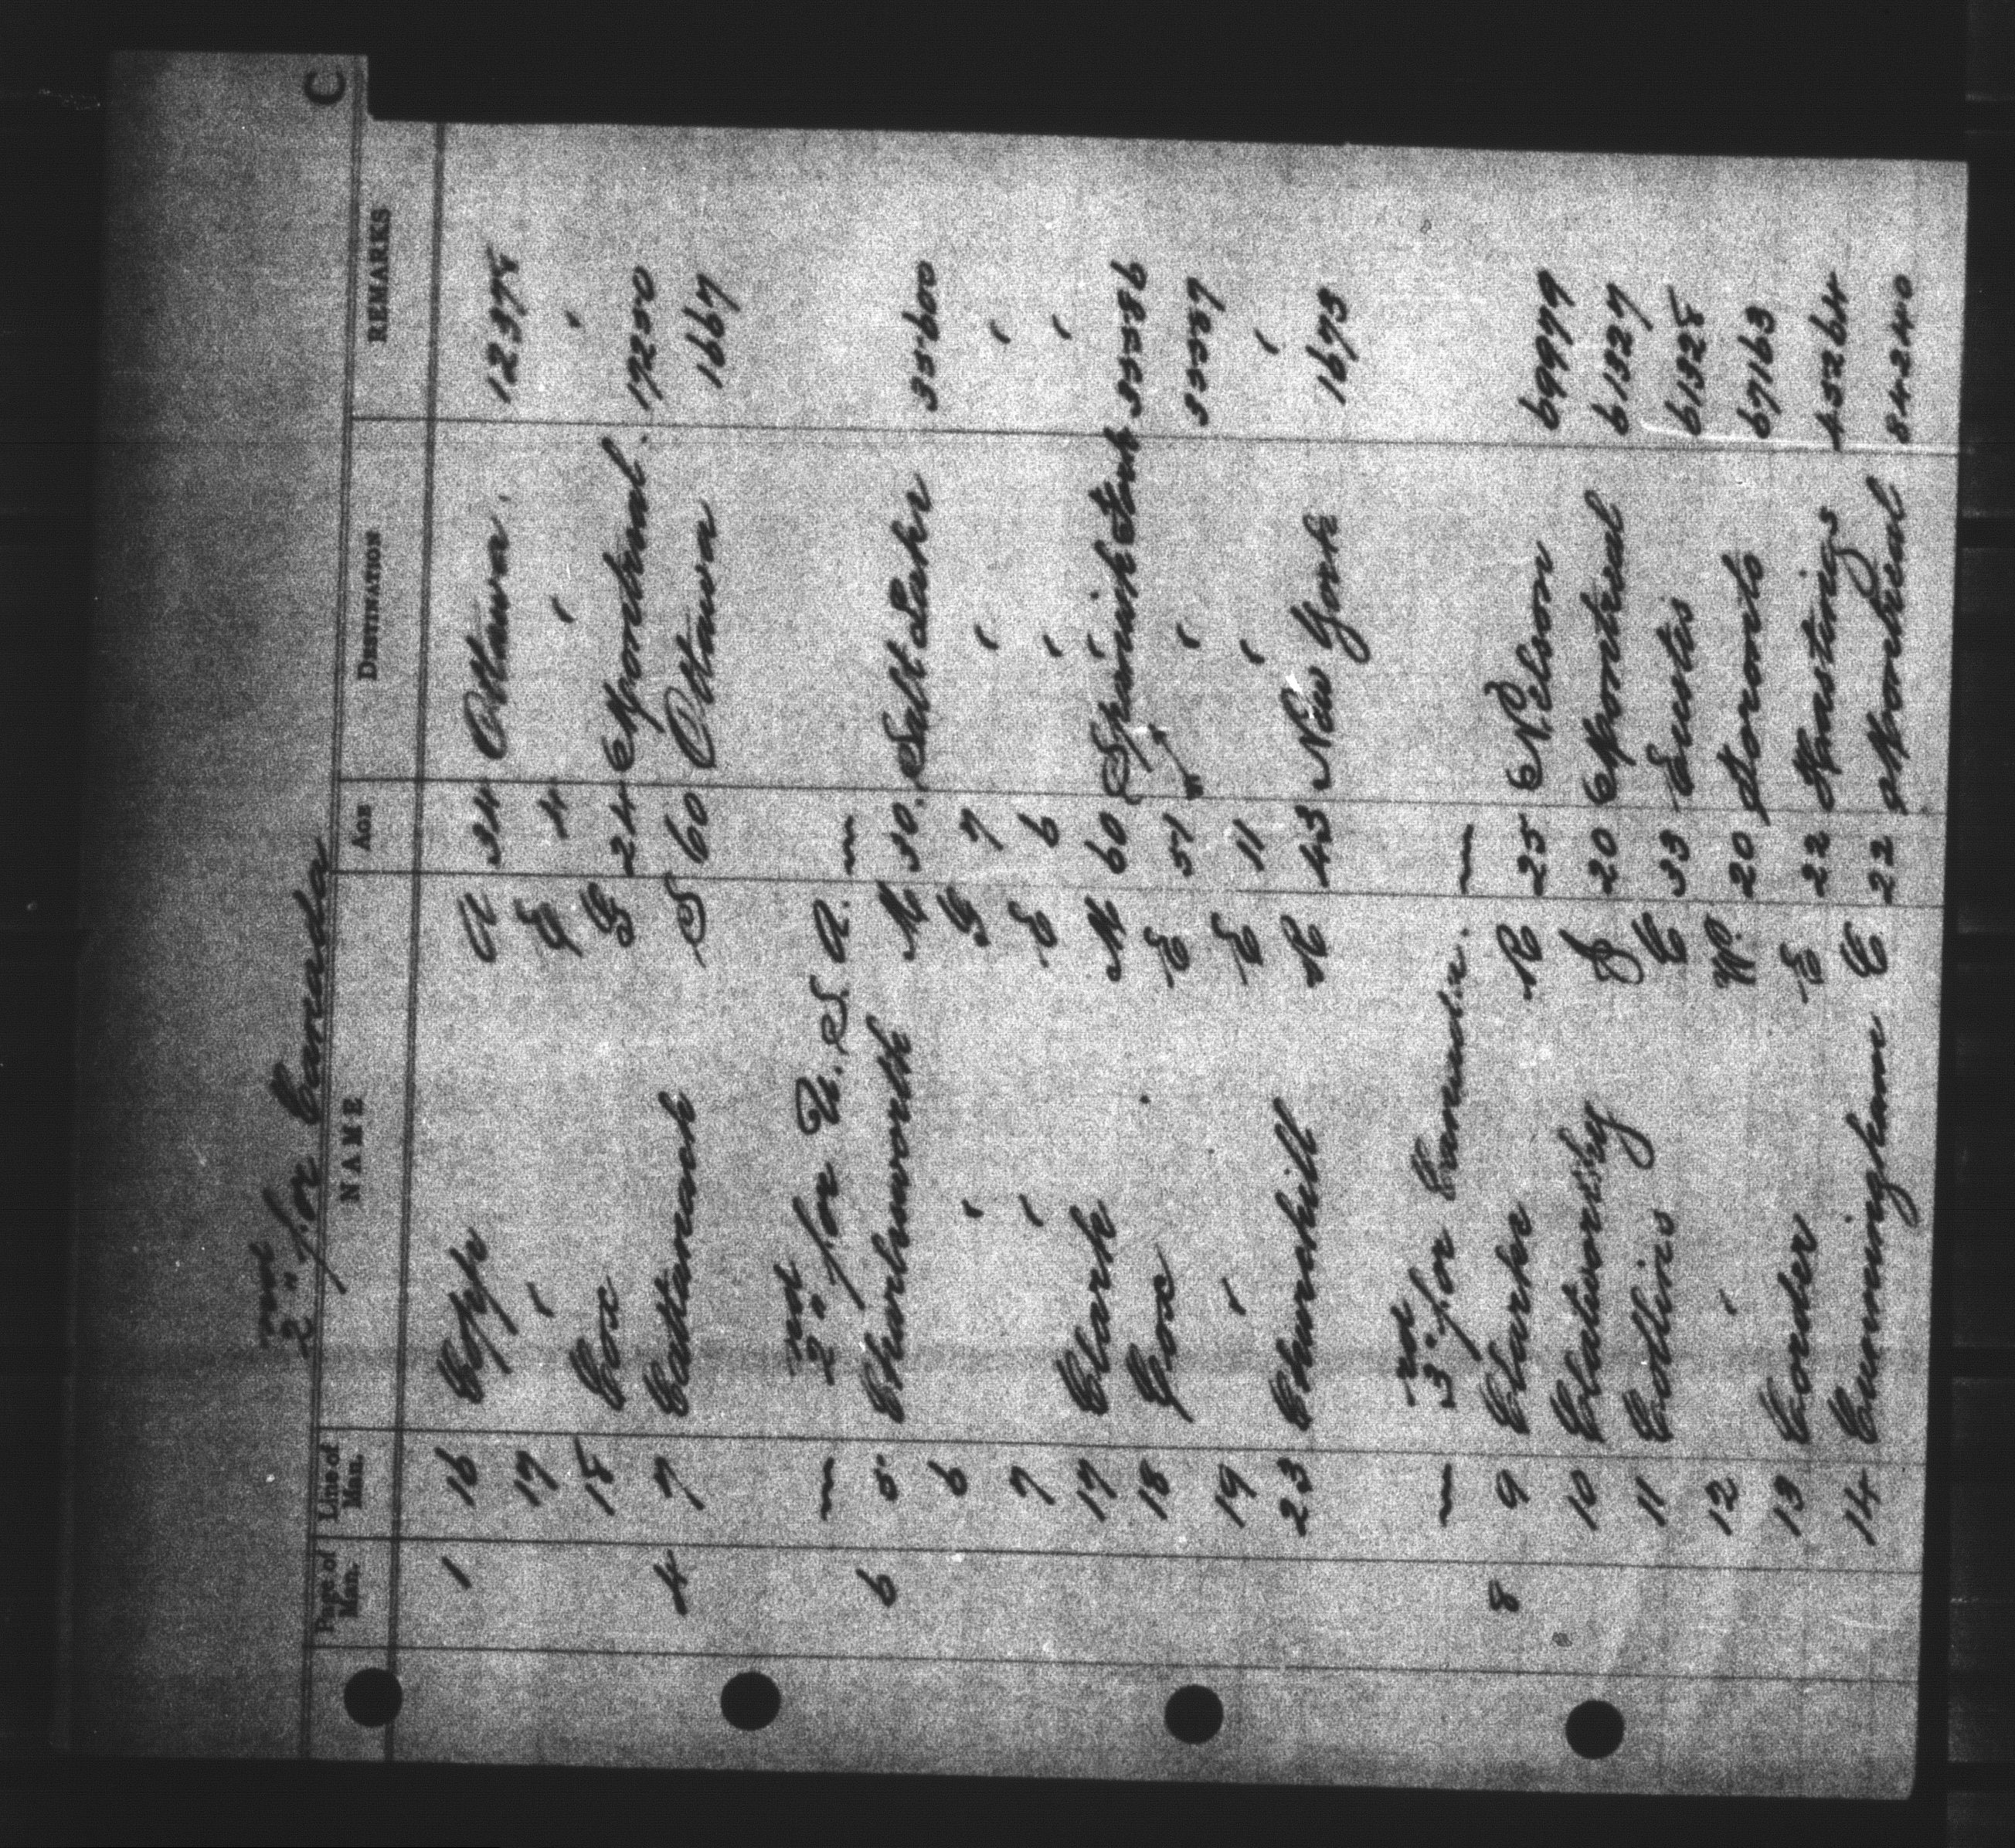 C
2nd for Canada
Page of Man. Line of Man. NAME AGE DESTINATION REMARKS
1 16 Copp A 34 Ottawa. 12378
17 " E 4 "
18 Cox G 24 Montreal. 17250
4 7 Cattanach S 60 Ottawa 1667
2nd for U.S.A.
6 5 Charlesworth M 30. Salt Lake 35600
6 " G 7 " "
7 " E 6 " "
17 Clark M 60 Spanish Fork 35586
18 Cox E 51 " 35587
19 " E 11 " "
23 Churchill R 43 New York 1673
3rd for Canada.
8 9 Clarke R 25 Nelson 69979
10 Clatworthy J 20 Montreal 61327
11 Collins E 33 Eustis 61328
12 " W. 20 Toronto 67163
13 Corder E 22 Hastings 45264
14 Cunningham E 22 Montreal 84240